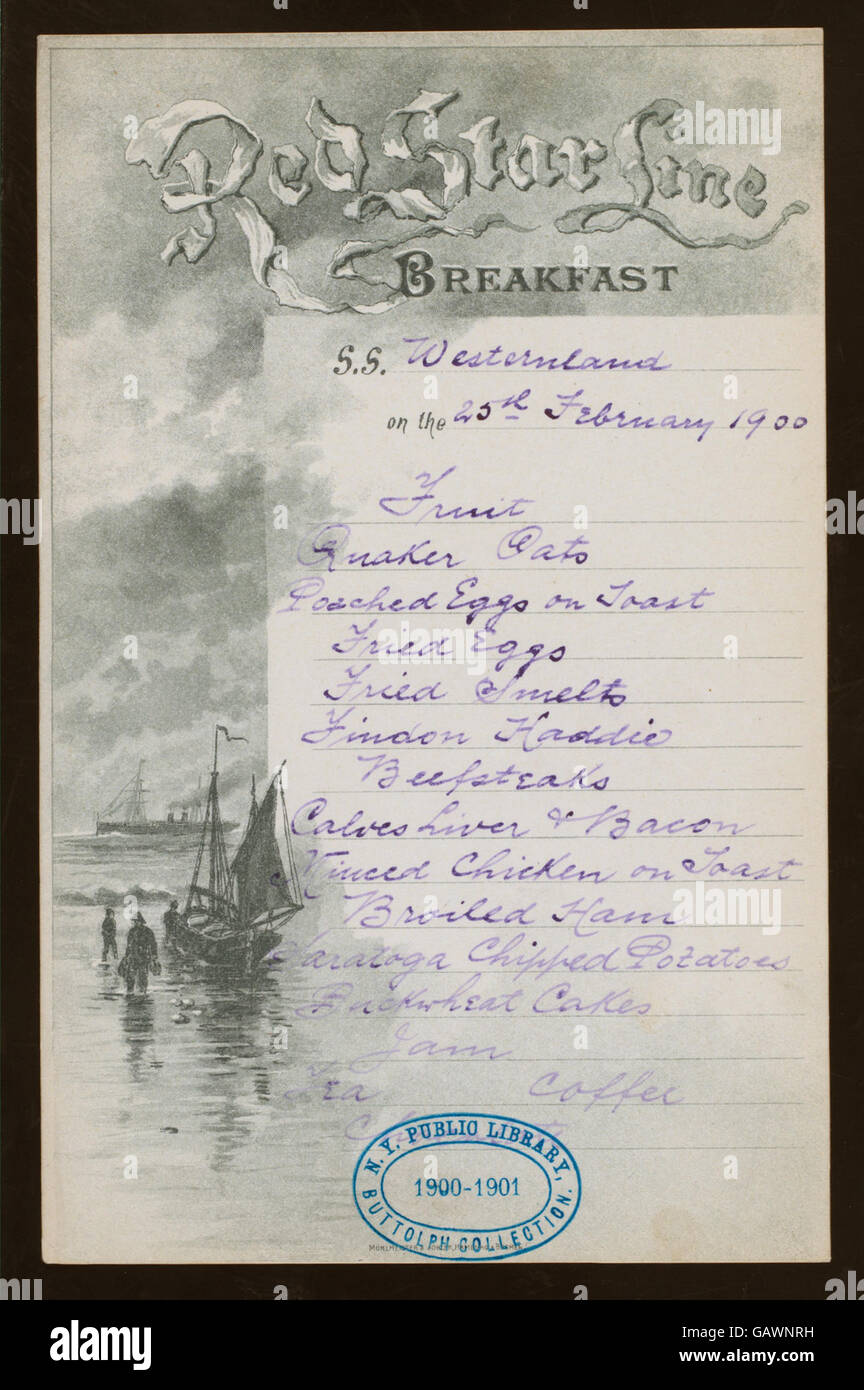 Red Star Line
BREAKFAST
S.S. Westernland
on the 25th February 1900
Fruit
Quaker Oats
Poached Eggs on Toast
Fried Eggs
Fried Smelts
Findon Haddie
Beefsteaks
Calves Liver & Bacon
Minced Chicken on Toast
Broiled Ham
Saratoga Chipped Potatoes
Buckwheat Cakes
Jam
Tea Coffee
N.Y. PUBLIC LIBRARY,
1900-1901
BUTTOLPH COLLECTION.
alamy
alamy stock photo
Image ID: GAWNRH
www.alamy.com